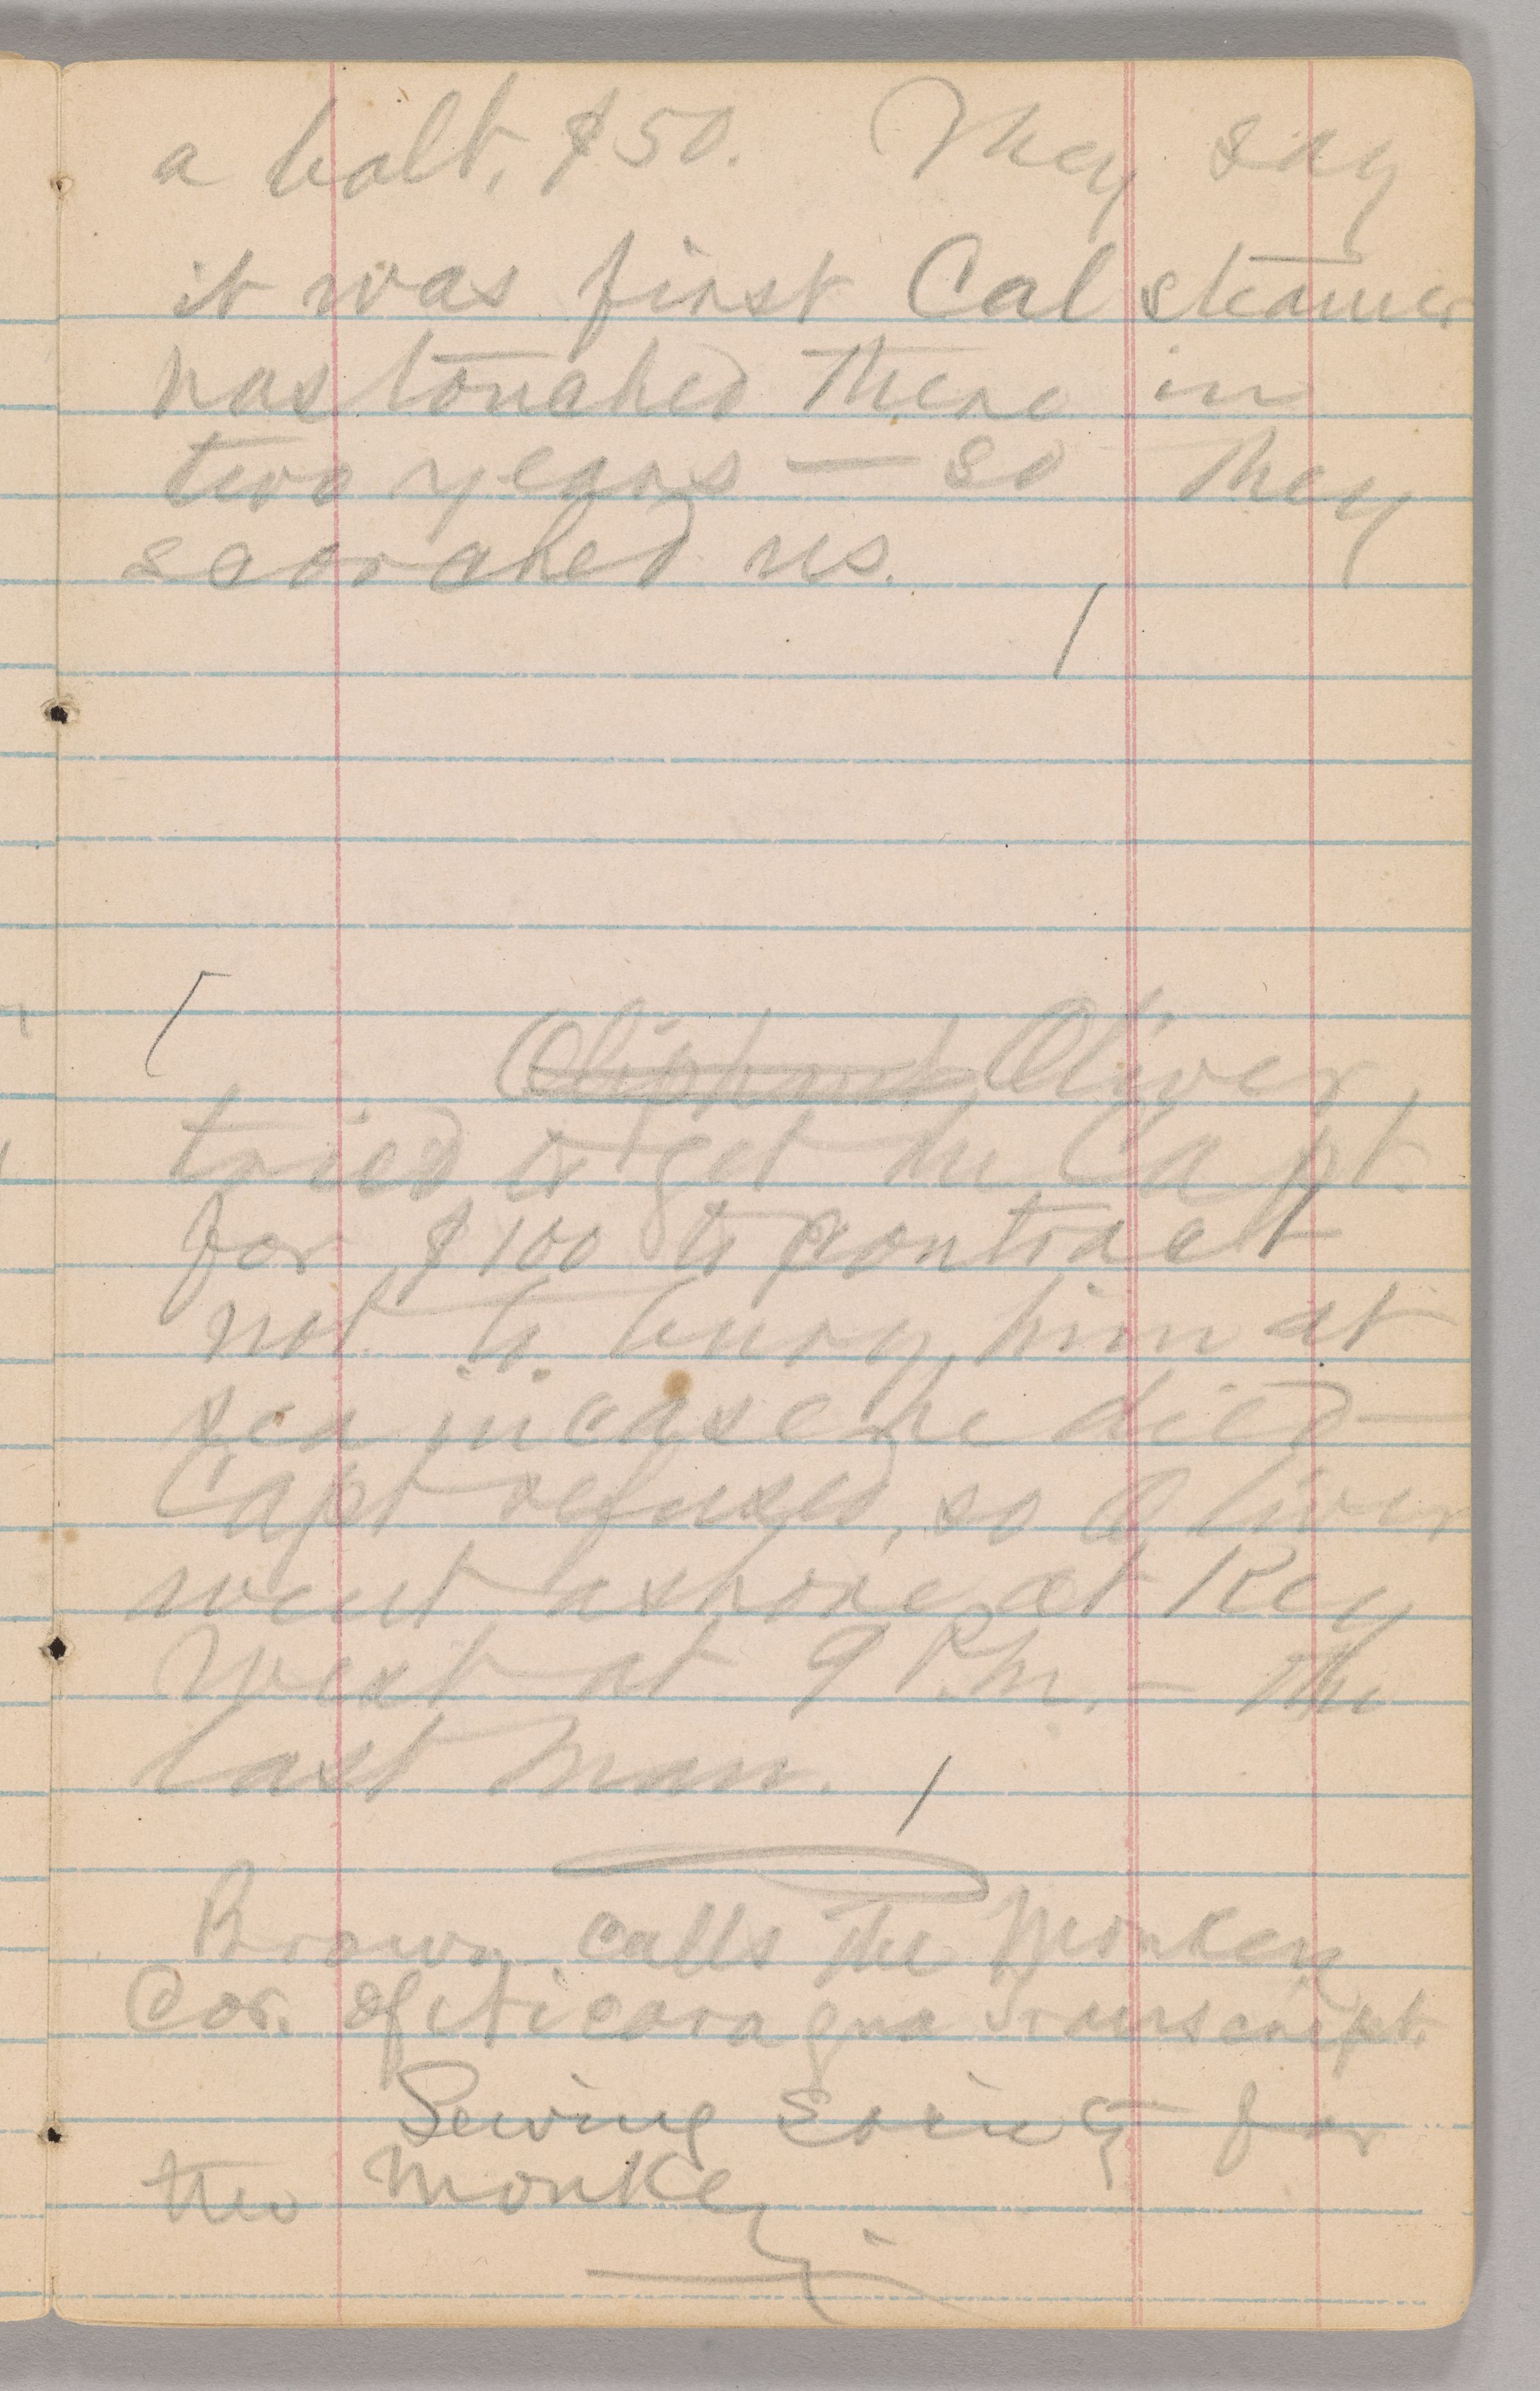 a bolt, $50. They say
it was first Cal steamer
has touched there in
two years — so they
scorched us.
Oliphant Oliver
tried to get the Capt.
for $100 to contract
not to bury him at
sea in case he died—
Capt refused, so Oliver
went ashore at Key
West at 9 P.M. — the
last man.
Brown calls the Monkey
Cor. of Nicaragua Transcript.
Sewing Society for
the Monkey